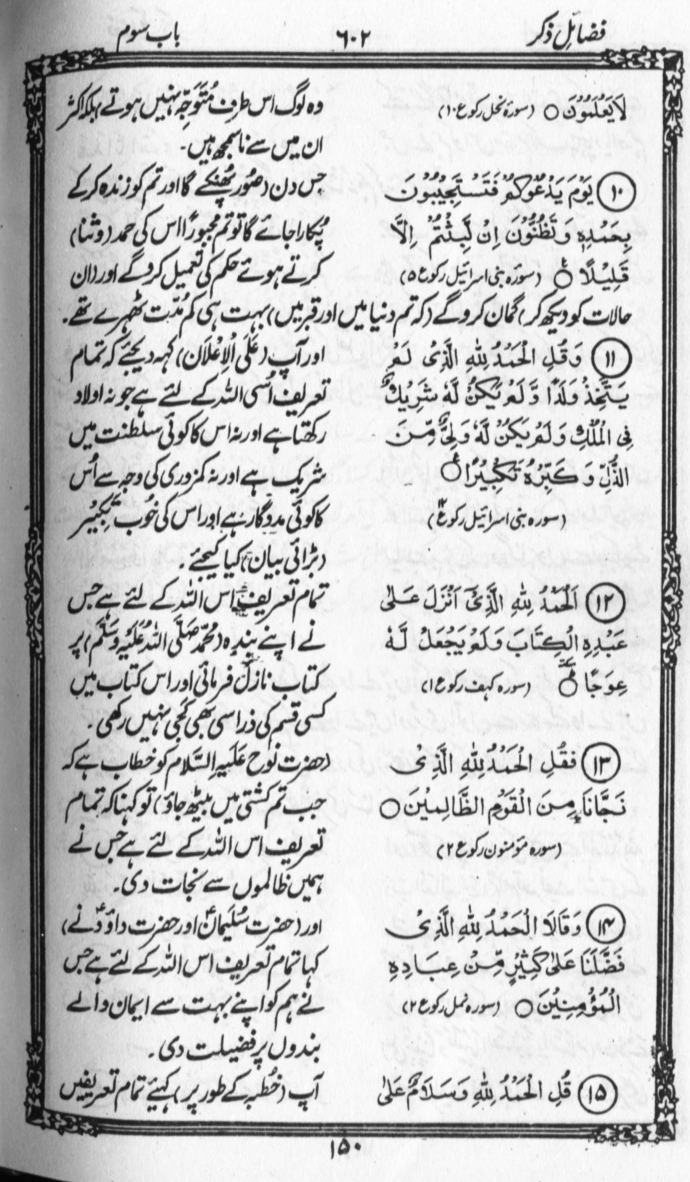 فضائلِ ذکر
۶۰۲
باب سوم
لَا يَعْلَمُوْنَ ○ (سورۂ نحل رکوع ۱۰)
وہ لوگ اس طرف مُتَوَجِّہ نہیں ہوتے بلکہ اکثر
ان میں سے ناسمجھ ہیں۔
⑩ يَوْمَ يَدْعُوْكُمْ فَتَسْتَجِيْبُوْنَ
بِحَمْدِهٖ وَتَظُنُّوْنَ اِنْ لَّبِثْتُمْ اِلَّا
قَلِيْلًا ○ (سورہ بنی اسرائیل رکوع ۵)
جس دن (صُور) پُھنکے گا اور تم کو زندہ کر کے
پُکارا جائے گا تو تم مجبورًا اس کی حمد (و ثنا)
کرتے ہوئے حکم کی تعمیل کرو گے اور (ان
حالات کو دیکھ کر) گمان کرو گے (کہ تم دنیا میں اور قبر میں) بہت ہی کم مُدّت ٹھہرے تھے۔
⑪ وَقُلِ الْحَمْدُ لِلّٰهِ الَّذِیْ لَمْ
يَتَّخِذْ وَلَدًا وَّلَمْ يَكُنْ لَّهٗ شَرِيْكٌ
فِی الْمُلْكِ وَلَمْ يَكُنْ لَّهٗ وَلِیٌّ مِّنَ
الذُّلِّ وَكَبِّرْهُ تَكْبِيْرًا ○
(سورہ بنی اسرائیل رکوع)
اور آپ (عَلَی الْاِعْلَان) کہہ دیجئے کہ تمام
تعریف اُسی اللہ کے لئے ہے جو نہ اولاد
رکھتا ہے اور نہ اس کا کوئی سلطنت میں
شریک ہے اور نہ کمزوری کی وجہ سے اُس
کا کوئی مددگار ہے اور اس کی خوب تکبیر
(بڑائی بیان) کیا کیجئے۔
⑫ اَلْحَمْدُ لِلّٰهِ الَّذِیْ اَنْزَلَ عَلٰی
عَبْدِهِ الْكِتَابَ وَلَمْ يَجْعَلْ لَّهٗ
عِوَجًا ○ (سورہ کہف رکوع ۱)
تمام تعریف اس اللہ کے لئے ہے جس
نے اپنے بندہ (مُحَمَّد صَلَّی اللہُ عَلَیْہِ وَسَلَّمَ) پر
کتاب نازل فرمائی اور اس کتاب میں
کسی قسم کی ذراسی بھی کجی نہیں رکھی۔
⑬ فَقُلِ الْحَمْدُ لِلّٰهِ الَّذِیْ
نَجَّانَا مِنَ الْقَوْمِ الظَّالِمِيْنَ ○
(سورہ مؤمنون رکوع ۲)
(حضرت نوح عَلَیہِ السَّلام کو خطاب ہے کہ
جب تم کشتی میں بیٹھ جاؤ) تو کہنا کہ تمام
تعریف اس اللہ کے لئے ہے جس نے
ہمیں ظالموں سے نجات دی۔
⑭ وَقَالَا الْحَمْدُ لِلّٰهِ الَّذِیْ
فَضَّلَنَا عَلٰی كَثِيْرٍ مِّنْ عِبَادِهِ
الْمُؤْمِنِيْنَ ○ (سورہ نمل رکوع ۲)
اور (حضرت سُلَیمان اور حضرت داؤد نے)
کہا تمام تعریف اس اللہ کے لئے ہے جس
نے ہم کو اپنے بہت سے ایمان والے
بندوں پر فضیلت دی۔
⑮ قُلِ الْحَمْدُ لِلّٰهِ وَسَلَامٌ عَلٰی
آپ (خُطبہ کے طور پر) کہئے تمام تعریفیں
۱۵۰